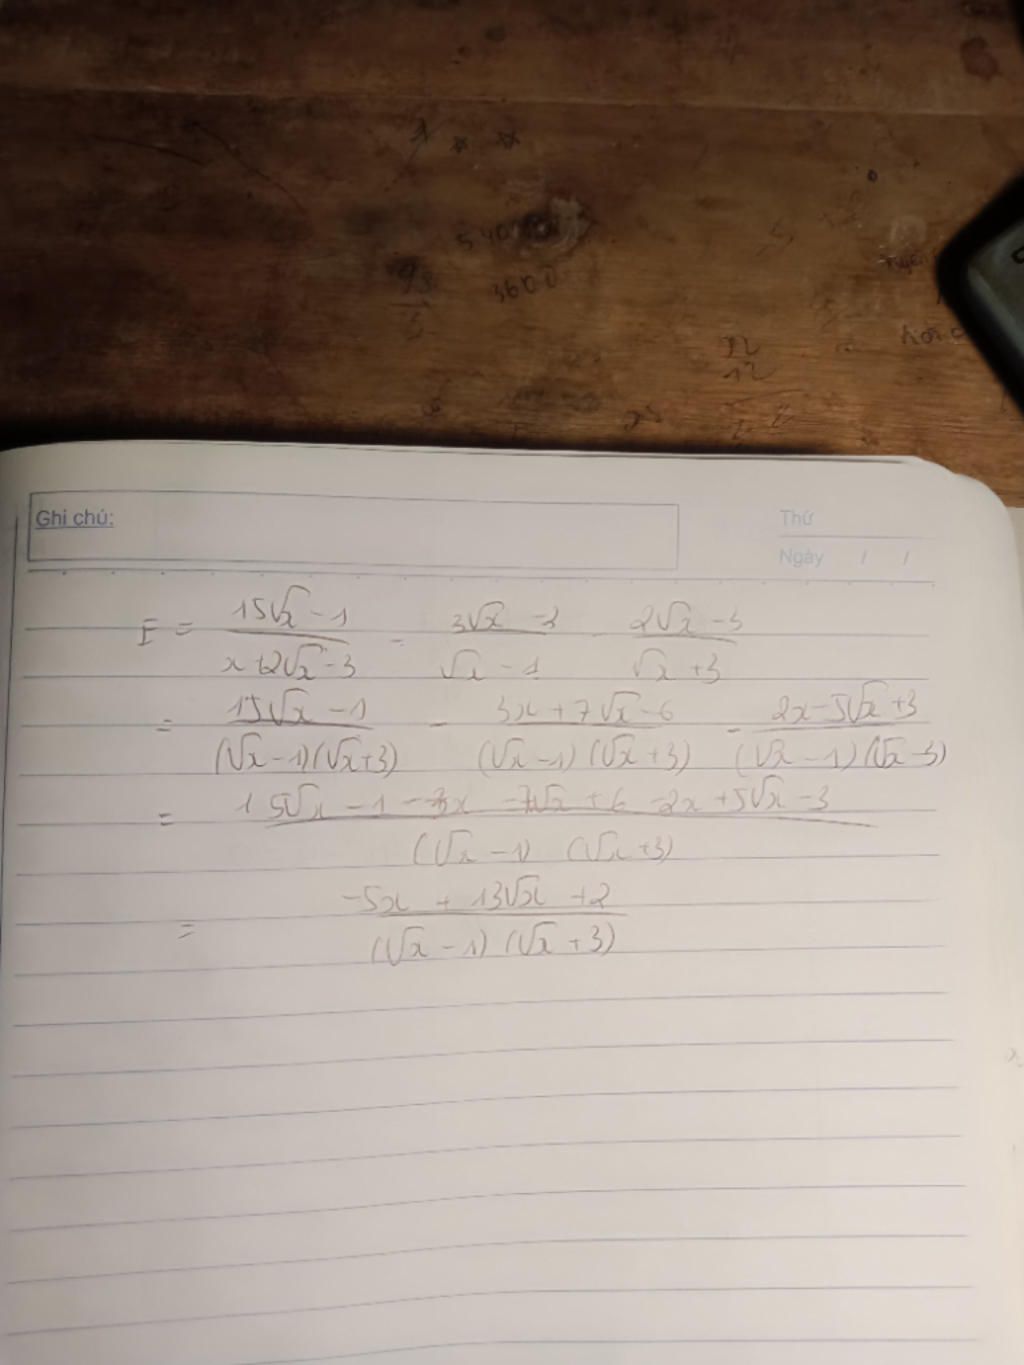 5400
93
3600
5
12
12
Ghi chú:
Thứ
Ngày / /
F = (15√x - 1)/(x+2√x - 3) - (3√x - 3)/(√x - 1) - (2√x - 3)/(√x + 3)
= (15√x - 1)/((√x - 1)(√x+3)) - (3x + 7√x - 6)/((√x - 1)(√x + 3)) - (2x - 5√x + 3)/((√x - 1)(√x - 3))
= (15√x - 1 - 3x - 7√x + 6 - 2x + 5√x - 3)/((√x - 1)(√x + 3))
= (-5x + 13√x + 2)/((√x - 1)(√x + 3))